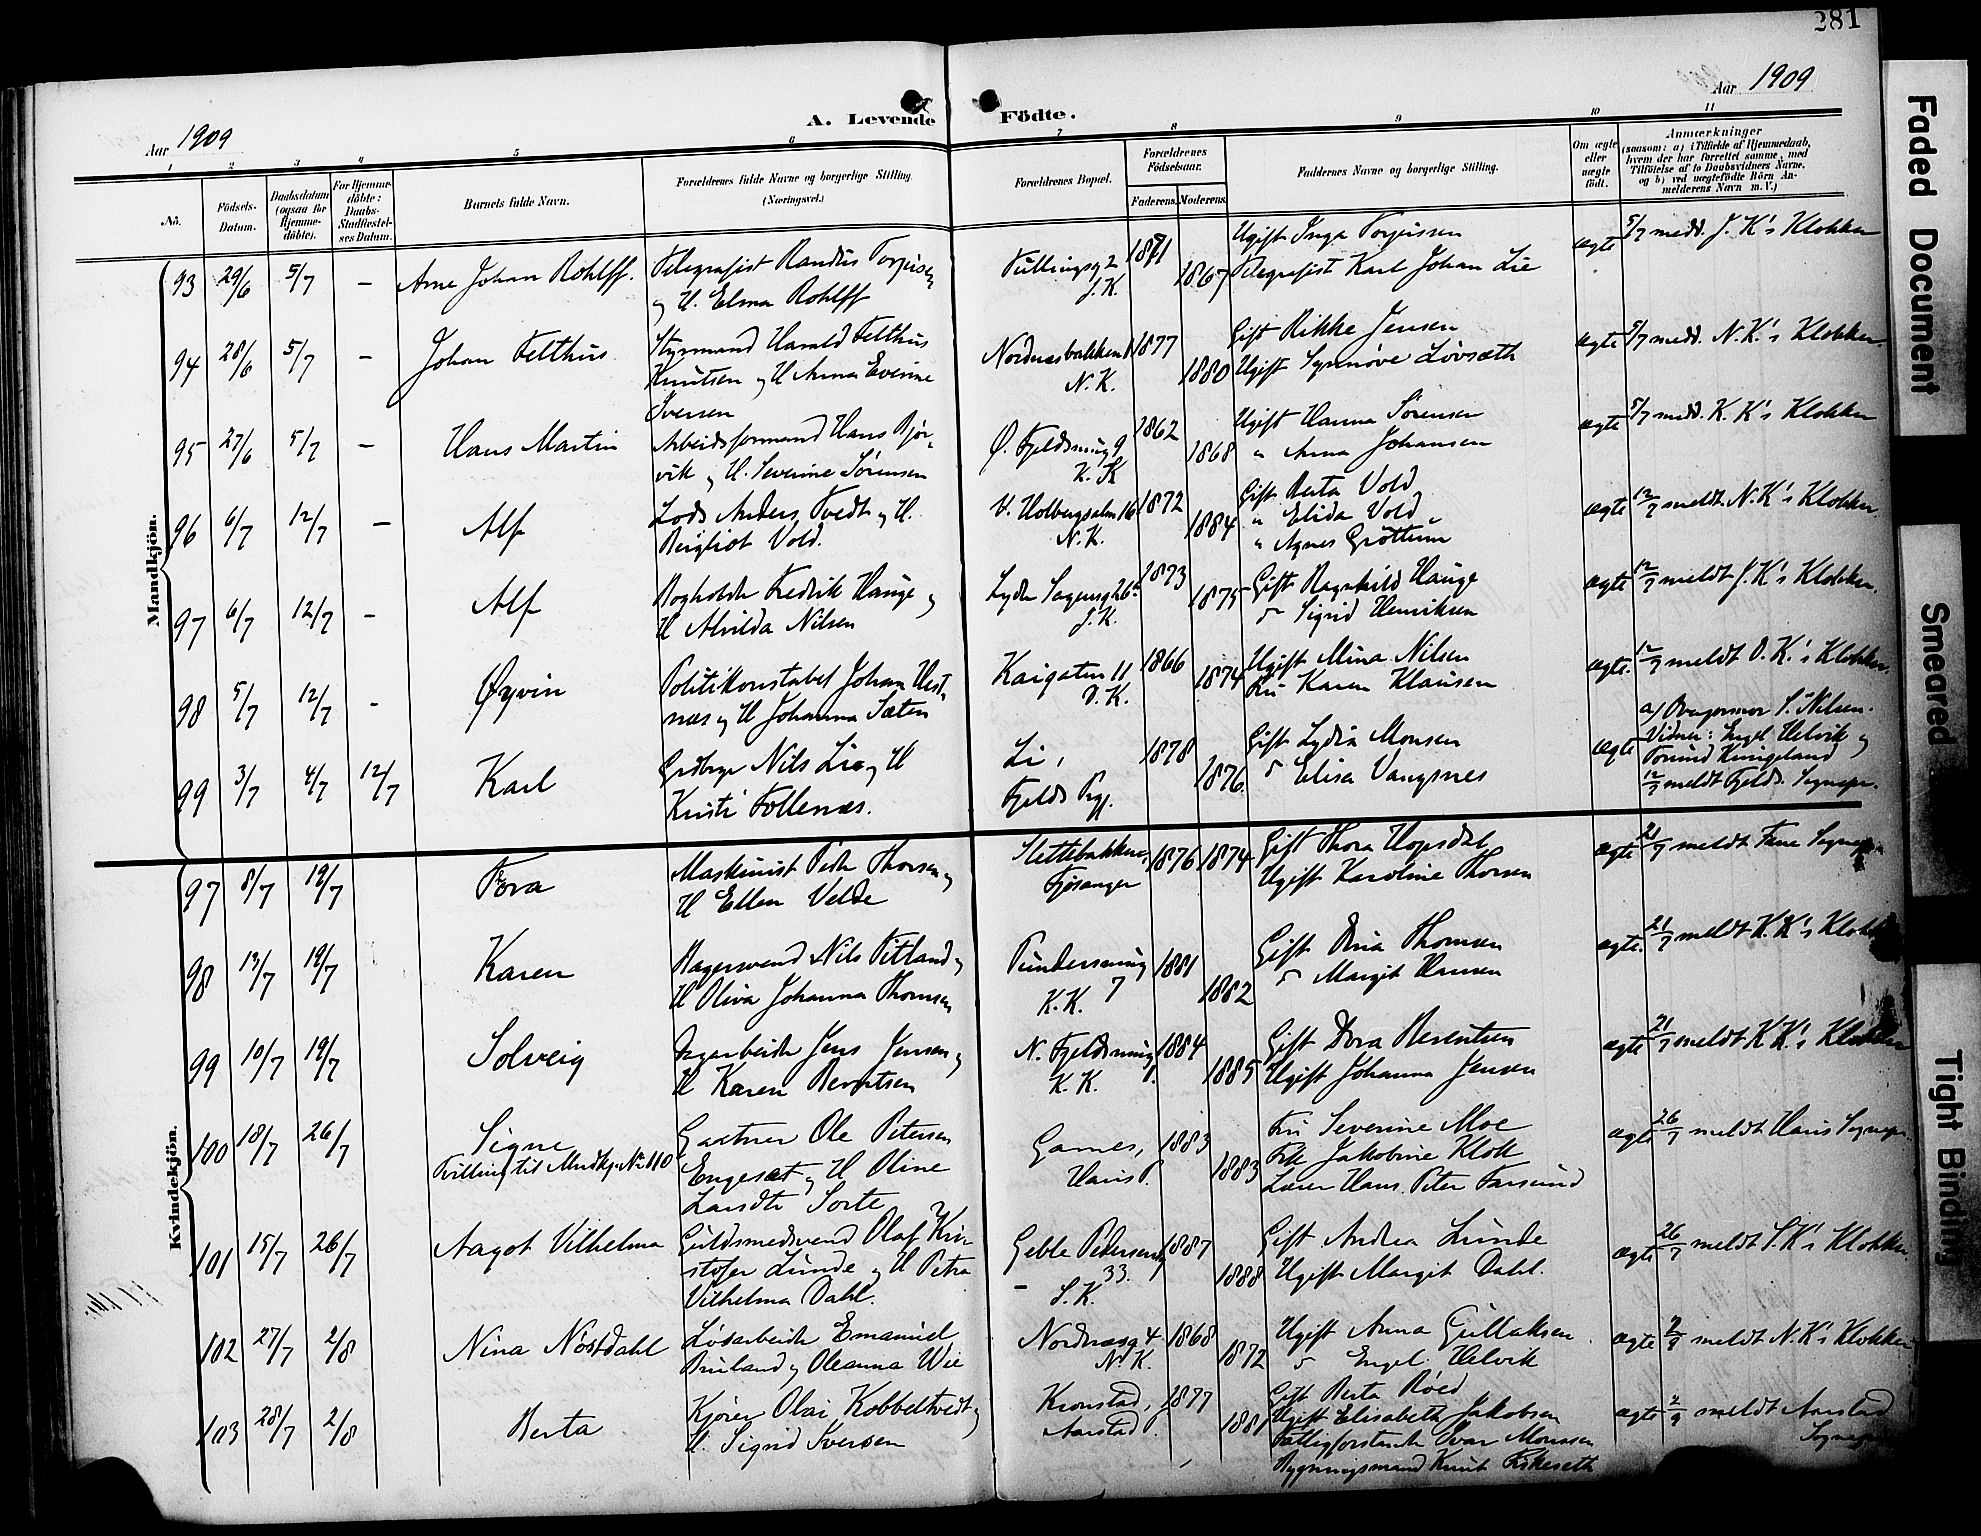 281
Aar 1909
Aar 1909
A. Levende Födte.
1 2 3 4 5 6 7 8 9 10 11
No.
Födsels-Datum.
Daabsdatum (ogsaa for Hjemme-döbte).
For Hjemme-döbte: Daabs-Stadfestel-ses Datum.
Barnets fulde Navn.
Forældrenes fulde Navne og borgerlige Stilling (Næringsvei.)
Forældrenes Bopæl.
Forældrenes Födselsaar.
Faderens. Moderens.
Faddernes Navne og borgerlige Stilling.
Om ægte eller uægte födt.
Anmærkninger
(saasom: a) i Tilfælde af Hjemmedaab,
hvem der har forrettet samme, med
Tilföielse af to Daabsvidners Navne,
og b) ved uægtefödte Börn An-
melderens Navn m. V.)
Mandkjön.
93 29/6 5/7 – Arne Johan Rohlff.
Telegrafist Randus Torjusen
og H. Elma Rohlff
Tullingsg 2
J.K.
1871 1867
Ugift Inga Torjussen
Telegrafist Karl Johan Lie
ægte 5/7 medd. J.K's Klokker
94 28/6 5/7 – Johan Felthus
Styrmand Harald Felthus
Knutsen og H Anna Evenine
Iversen
Nordnæsbakken
N.K.
1877 1880
Gift Rikke Jensen
Ugift Synnöve Lövsæth
ægte 5/7 medd. N.K.'s Klokker.
95 27/6 5/7 – Hans Martin
Arbeidsformand Hans Bjør-
vik og H. Severine Sörensen
Ø. Fjeldsmug 9
K.K
1862 1868
Ugift Hanna Sörensen
" Anna Johansen
ægte 5/7 medd. K.K's Klokker
96 6/7 12/7 – Alf
Lods Anders Tvedt og H.
Bergliot Vold.
V. Holbergsalm 16
N.K.
1872 1884
Gift Berta Vold
" Elida Vold
" Agnes Gröttum
ægte 12/7 meldt N.K's Klokker.
97 6/7 12/7 – Alf
Bogholder Fredrik Hauge og
H Alvilda Nilsen
Lyder Sagensg 26
J.K.
1873 1875
Gift Ragnhild Hauge
" Sigrid Henriksen
ægte 12/7 meldt J.K's Klokker.
98 5/7 12/7 - Øyvin
Politikonstabel Johan Hest-
næs og H Johanna Sæten
Kaigaten 11
D.K.
1866 1874
Ugift Mina Nilsen
Fru Karen Klausen
ægte. 12/7 meldt D.K.'s Klokker.
99 3/7 4/7 12/7 Karl
Grdbrgr Nils Lie og H
Kristi Follenæs.
Li,
Fjelds Prgj.
1878 1876.
Gift Lydia Monsen
" Elisa Vangsnes
ægte
a) Jordemor S. Nilsen.
Vidner: Engel Helvik og
12/7 meldt Fjelds Sognepr.
Kvindekjön.
97 8/7 19/7 Tora
Maskinist Peder Thorsen og
H Ellen Velde
Slettebakken,
Fjösanger
1876 1874
Gift Thora Hopsdal
Ugift Karoline Thorsen
ægte 21/7 meldt Fane Sognepr
98 13/7 19/7 Karen
Bagersvend Nils Titland og
H Oliva Johanna Thomsen
Pundersmug
K.K. 7
1881 1882
Gift Thomsen
" Margit Hansen
ægte. 21/7 meldt K.K's Klokk
99 10/7 19/7 Solveig
Bryarbeider Jens Jensen og
H Karen Berentsen
N. Fjeldsmug
K.K. 1.
1884 1885
Gift Dora Berentsen
Ugift Johanna Jensen
ægte 21/7 meldt K.K's Klokker
100 18/7 26/7 Signe
Tvilling til Mndkj. No 110
Gartner Ole Petersen
Engesæt og H Oline
Larsdtr Sorte
Garnes,
Haus P.
1883 1883
Fru Severine Moe
Frk Jakobine Klok
Lærer Hans Peter Farsund
ægte 26/7 meldt Haus Sognepr.
101 15/7 26/7 Aagot Vilhelma
Guldsmedsvend Olaf Kri-
stofer Lunde og H Petra
Vilhelma Dahl.
Geble Pedersensg
33.
S.K.
1887 1888
Gift Andrea Lunde
Ugift Margit Dahl.
ægte 26/7 meldt S.K's Klokker.
102 27/7 2/8 Nina Nöstdahl
Lösarbeider Emanuel
Bruland og Oleanna Wie
Nordnæsg 4
N.K.
1868 1872
Ugift Anna Gullaksen
" Engel Helvik
ægte 2/8 meldt N.K's Klokker
103 28/7 2/8 Berta
Kjörer Olai Kobbeltvedt og
H. Sigrid Iversen
Kronstad,
Aarstad P.
1877 1881
Gift Berta Röed
Ugift Elisabeth Jakobsen
Fattigforstander Ivar Monssen
Bygningsmand Knut Fikseseth
ægte 2/8 meldt Aarstad
Sognepr
Faded Document
Smeared
Tight Binding